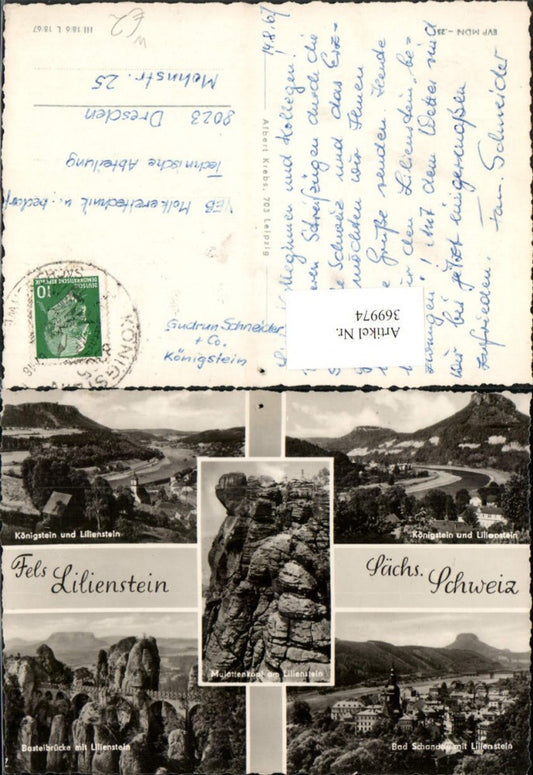 EVP MDN -,25
III 18/6 L 18/67
14.8.67
Kolleginnen und Kollegen!
Streifzügen durch die
Schweiz und das
möchten wir Ihnen
Grüße senden. Heute
den Lilienstein, be-
! Mit dem Wetter sind
wir bis jetzt einigermaßen
zufrieden.
Fam. Schneider
Albert Krebs, 703 Leipzig
DEUTSCHE
DEMOKRATISCHE REPUBLIK
10
VEB Molkereitechnik u. -bedarf
Technische Abteilung
8023 Dresden
Mohnstr. 25
Gudrun Schneider
+ Co.
Königstein
Artikel Nr.
369974
Königstein und Lilienstein
Königstein und Lilienstein
Fels Lilienstein
Sächs. Schweiz
Mulattenkopf am Lilienstein
Basteibrücke mit Lilienstein
Bad Schandau mit Lilienstein